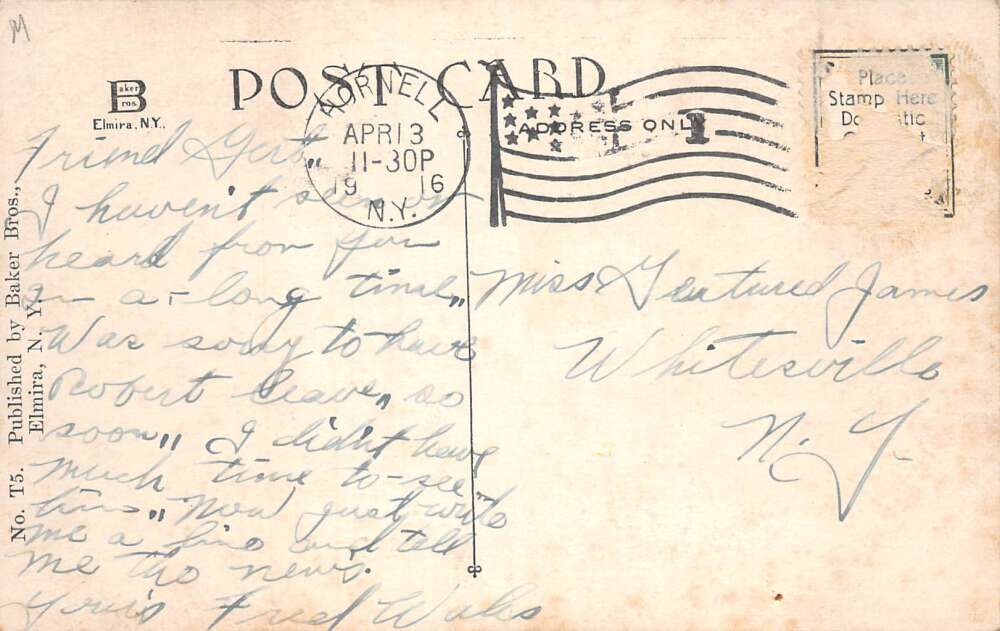 M
Baker Bros.
Elmira, N.Y.
POST CARD
HORNELL
APR 13
11-30P
1916
N.Y.
ADDRESS ONLY
1
Place
Stamp Here
No. T5. Published by Baker Bros.,
Elmira, N. Y.
Friend Gert,,
I haven't seen or
heard from you
in a-long time,,
Was sorry to have
Robert leave,, so
soon,, I didn't have
much time to-see
him,, Now just write
me a line and tell
me the news.
Yours Fred
Miss Gertured James
Whitesville
N. Y.